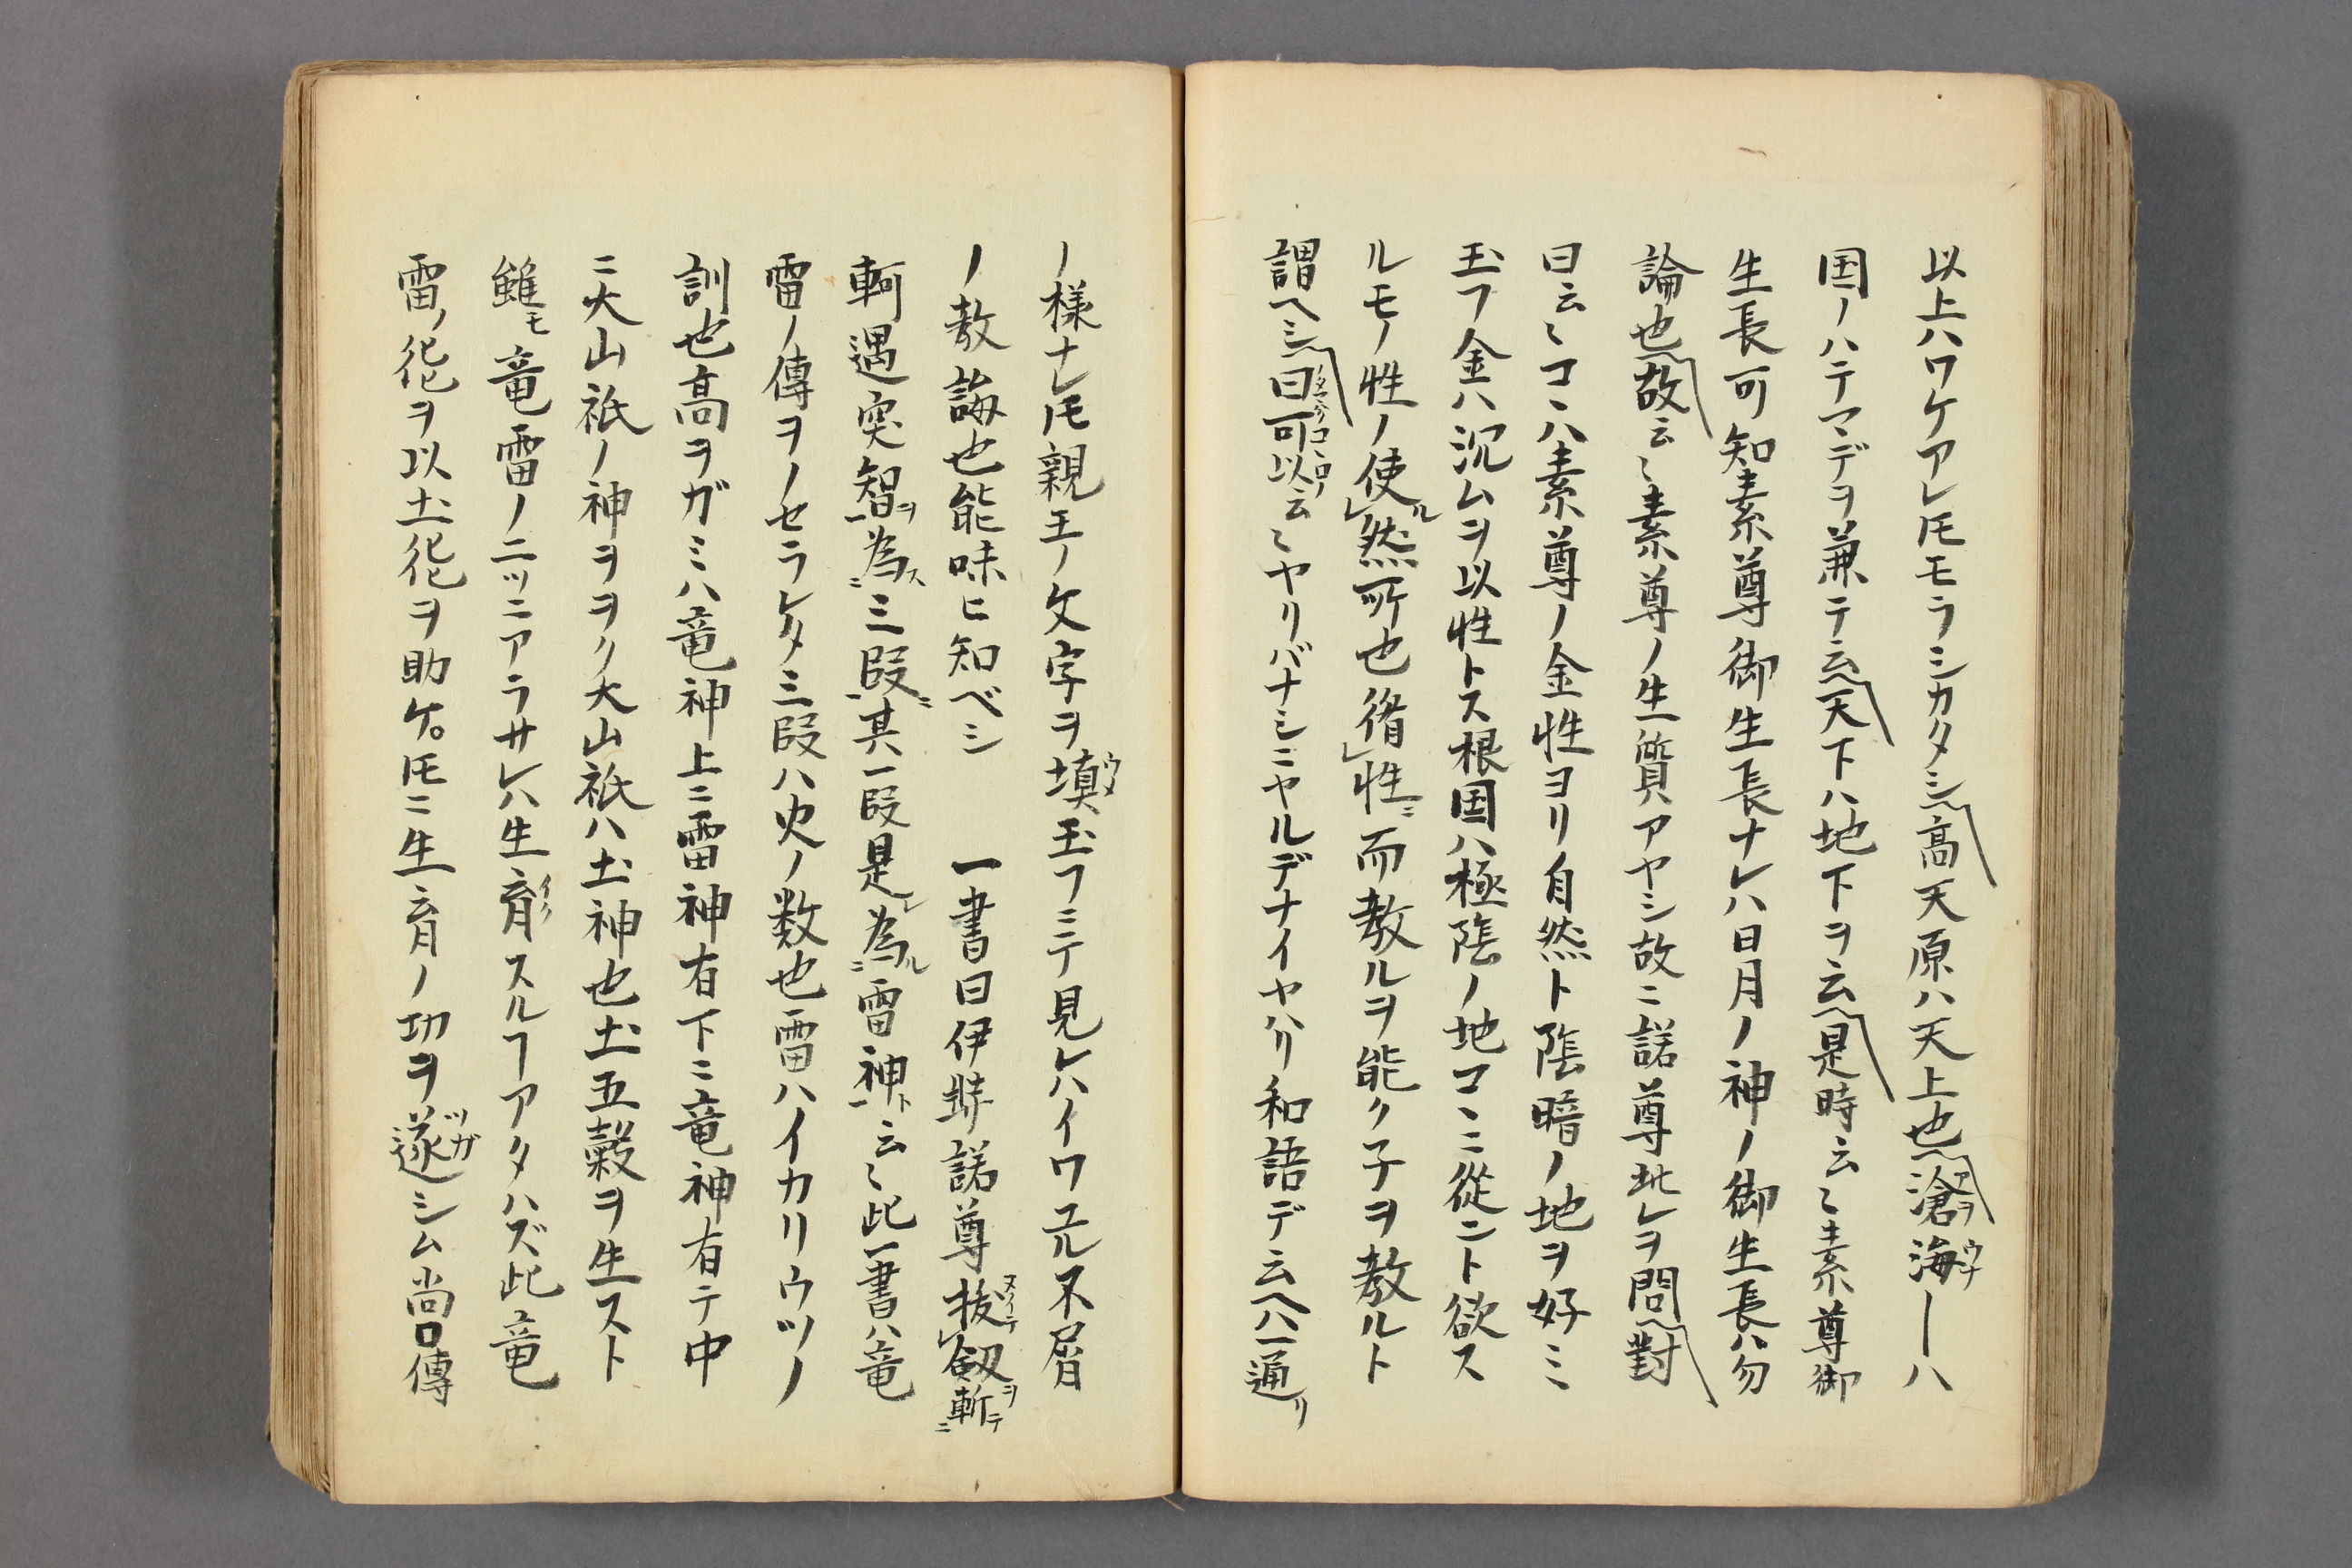 以上ハワケアレ𪜈モラシカタシ高天原ハ天上也滄海―ハ
国ノハテマデヲ兼テ云天下ハ地下ヲ云是時云〻素尊御
生長可知素尊御生長ナレハ日月ノ神ノ御生長ハ勿
論也故云〻素尊ノ生質アヤシ故ニ諾尊此レヲ問對
曰云〻コヽハ素尊ノ金性ヨリ自然ト陰暗ノ地ヲ好ミ
玉フ金ハ沉ムヲ以性トス根国ハ極陰ノ地コヽニ從ント欲ス
ルモノ性ノ使ルレ然所也循レ性ニ而教ルヲ能ク子ヲ教ルト
謂ヘシ曰可以云〻ヤリバナシニヤルデナイヤハリ和語デ云ヘハ一通リ
ノ様ナレ𪜈親王ノ文字ヲ塡玉フミテ見レハイワユル不屑
ノ教誨也能味ヒ知ベシ　一書曰伊弉諾尊拔レ劔ヲ斬テ二
軻遇突智ヲ一為ス二三段ニ一其一段是レ為ル二雷神ト一云〻此一書ハ竜
雷ノ傳ヲノセラレタ三段ハ火ノ数也雷ハイカリウツノ
訓也高ヲガミハ竜神上ニ雷神有下ニ竜神有テ中
ニ大山祇ノ神ヲヲク大山祇ハ土神也土五穀ヲ生スト
雖モ竜雷ノ二ツニアラサレハ生育スルヿアタハズ此竜
雷ノ化ヲ以土化ヲ助ケ𪜈ニ生育ノ功ヲ遂シム尚口傳